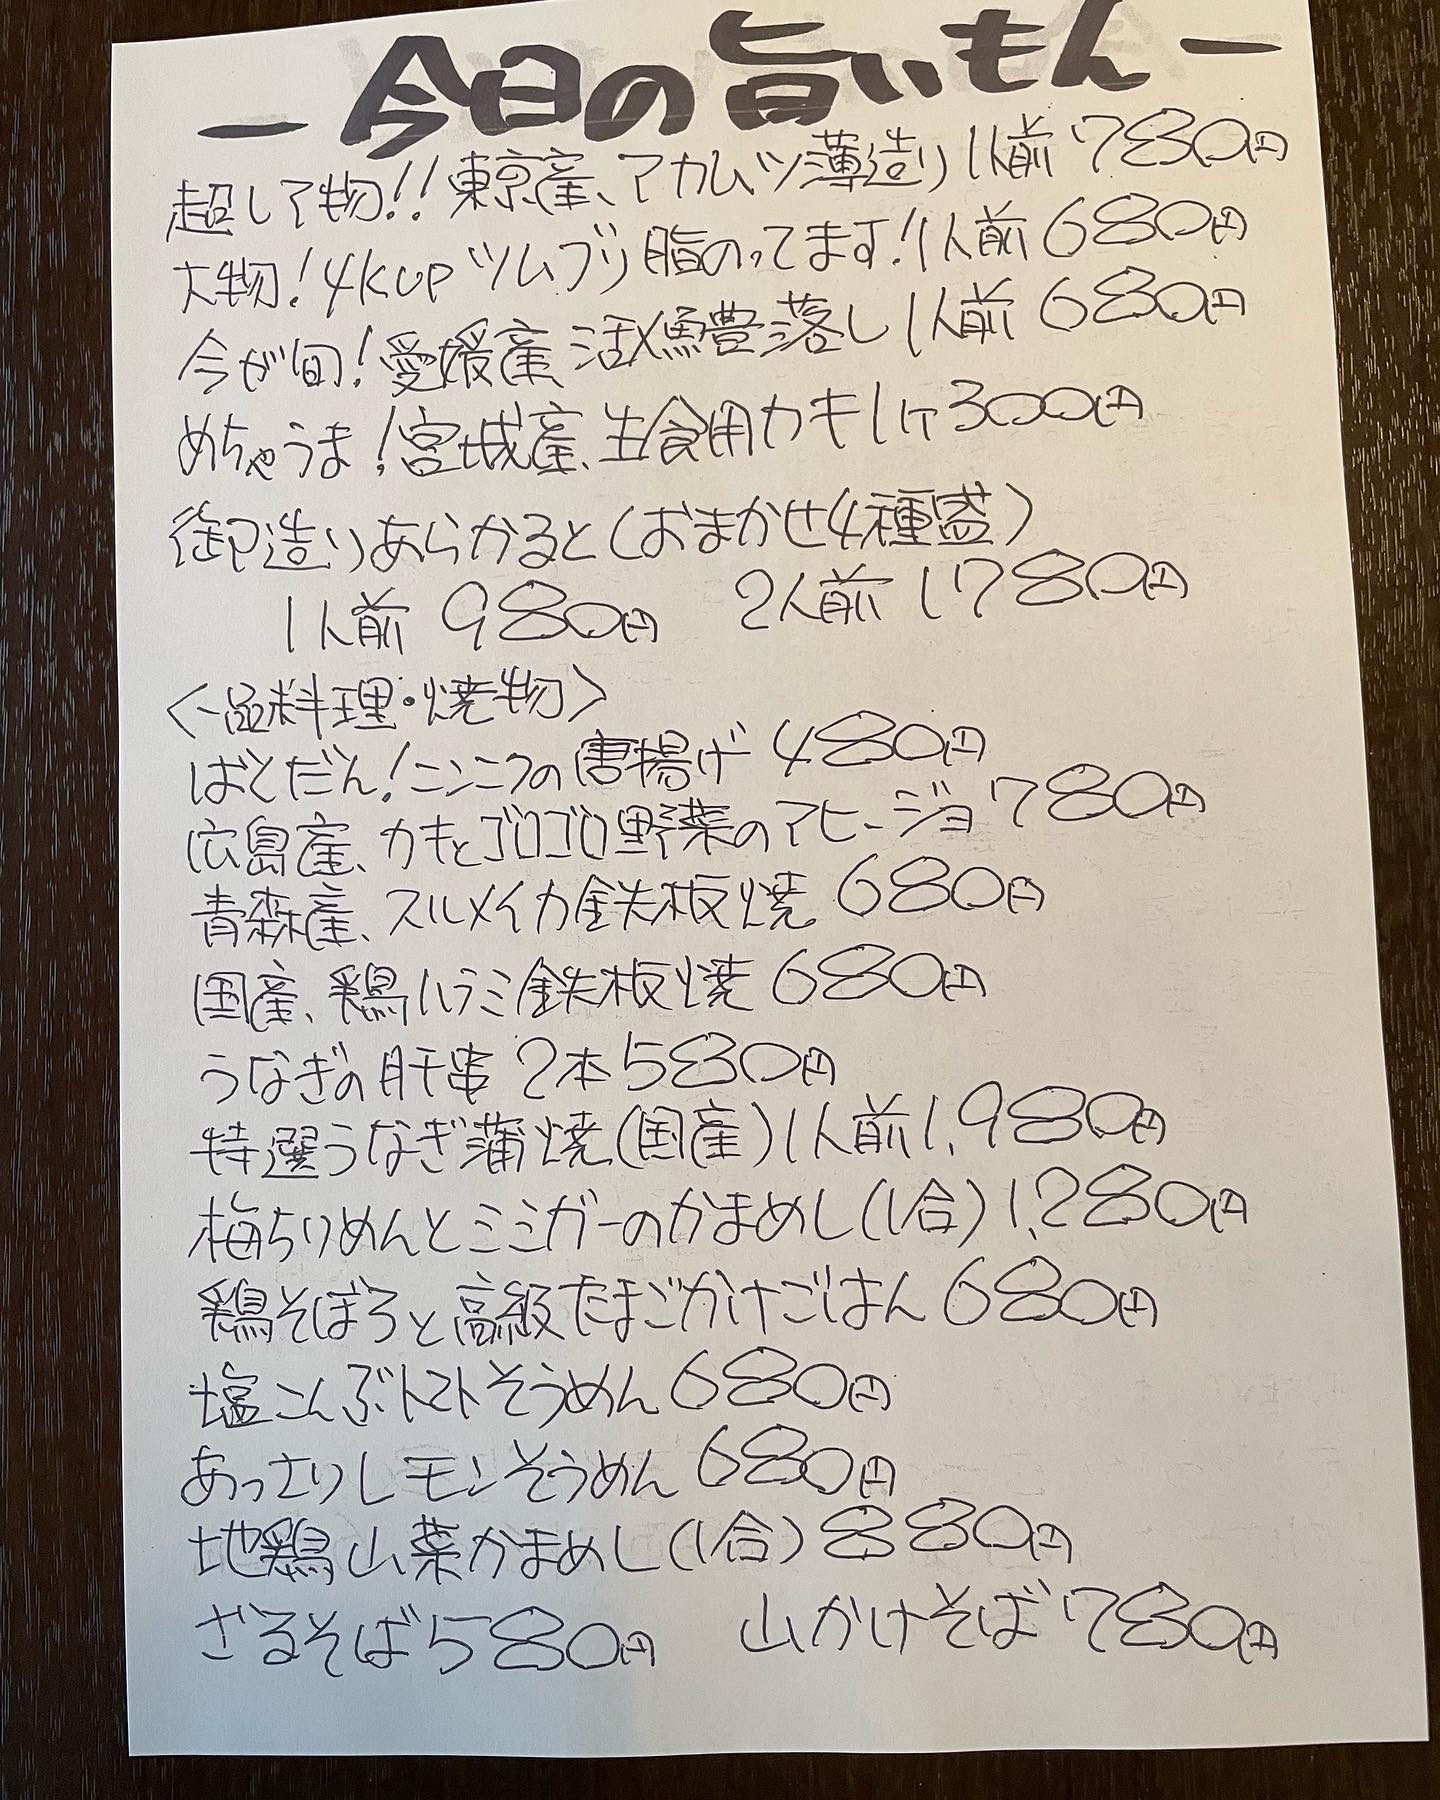 －今日の旨いもん－
超レア物!!東京産、アカムツ薄造り1人前780円
大物!4kupツムブリ脂のってます!1人前680円
今が旬!愛媛産、活〆鱧落し1人前680円
めちゃうま!宮城産、生食用カキ1ケ300円
御造りあらかると(おまかせ4種盛)
1人前 980円 2人前 1780円
<一品料理・焼物>
ばくだん!ニンニクの唐揚げ 480円
広島産、カキとゴロゴロ野菜のアヒージョ780円
青森産、スルメイカ鉄板焼 680円
国産、鶏ハラミ鉄板焼680円
うなぎの肝串 2本580円
特選うなぎ蒲焼(国産)1人前1,980円
梅ちりめんとミミガーのかまめし(1合)1,280円
鶏そぼろと高級たまごかけごはん680円
塩こんぶトマトそうめん680円
あっさりレモンそうめん680円
地鶏山菜かまめし(1合)880円
ざるそば580円 山かけそば780円